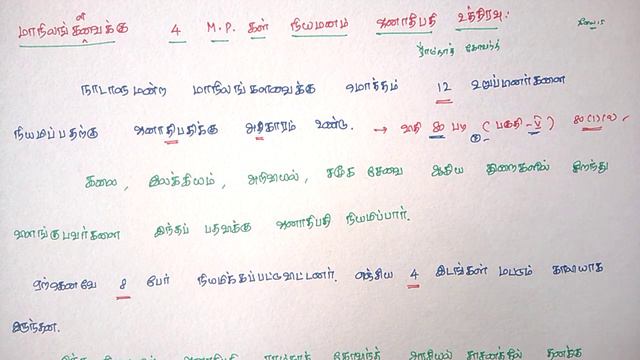 மாநிலங்களவைக்கு 4 M.P. கள் நியமனம் ஜனாதிபதி உத்திரவு:
ராம்நாத் கோவிந்த்
நாடாளுமன்ற மாநிலங்களவைக்கு மொத்தம் 12 உறுப்பினர்களை
நியமிப்பதற்கு ஜனாதிபதிக்கு அதிகாரம் உண்டு. → விதி 80 படி (பகுதி - V) 80(1)(a)
கலை, இலக்கியம், அறிவியல், சமூக சேவை ஆகிய துறைகளில் சிறந்து
விளங்குபவர்களை இந்தப் பதவிக்கு ஜனாதிபதி நியமிப்பார்.
ஏற்கெனவே 8 பேர் நியமிக்கப்பட்டுவிட்டனர். எஞ்சிய 4 இடங்கள் மட்டும் காலியாக
இருந்தன.
ஜனாதிபதி ராம்நாத் கோவிந்த் அரசியல் சாசனத்தில் தனக்கு